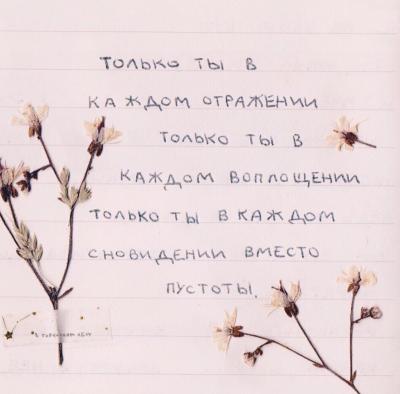 ТОЛЬКО ТЫ В
КАЖДОМ ОТРАЖЕНИИ
ТОЛЬКО ТЫ В
КАЖДОМ ВОПЛОЩЕНИИ
ТОЛЬКО ТЫ В КАЖДОМ
СНОВИДЕНИИ ВМЕСТО
ПУСТОТЫ.